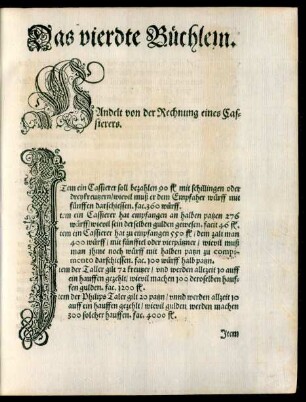 Das vierdte Büchlein.
HAndelt von der Rechnung eines Cas-
sierers.
ITem ein Cassierer soll bezahlen 90 fl. mit schillingen oder
dreykreutzern/wievil muß er dem Empfaher würff mit
fünffen darschiessen. fac. 360 würff.
Item ein Cassierer hat empfangen an halben patzen 276
würff/wievil sein derselben gulden gewesen. facit 46 fl.
Item ein Cassierer hat zu empfangen 550 fl. dem zalt man
400 würff mit fünffer oder vierpäzner / wievil muß
man ihme noch würff mit halben patzn zu compi-
mento darschiessen. fac. 300 würff halb patzn.
Item der Taller gilt 72 kreutzer / und werden allzeit 10 auff
ein hauffen gezehlt/ wievil machen 100 derselben hauf-
fen gulden. fac. 1200 fl.
Item der Philips Taler gilt 20 patzn / vnnd werden allzeit 10
auff ein hauffen gezehlt/ wievil gulden werden machen
300 solcher hauffen. fac. 4000 fl.
Item